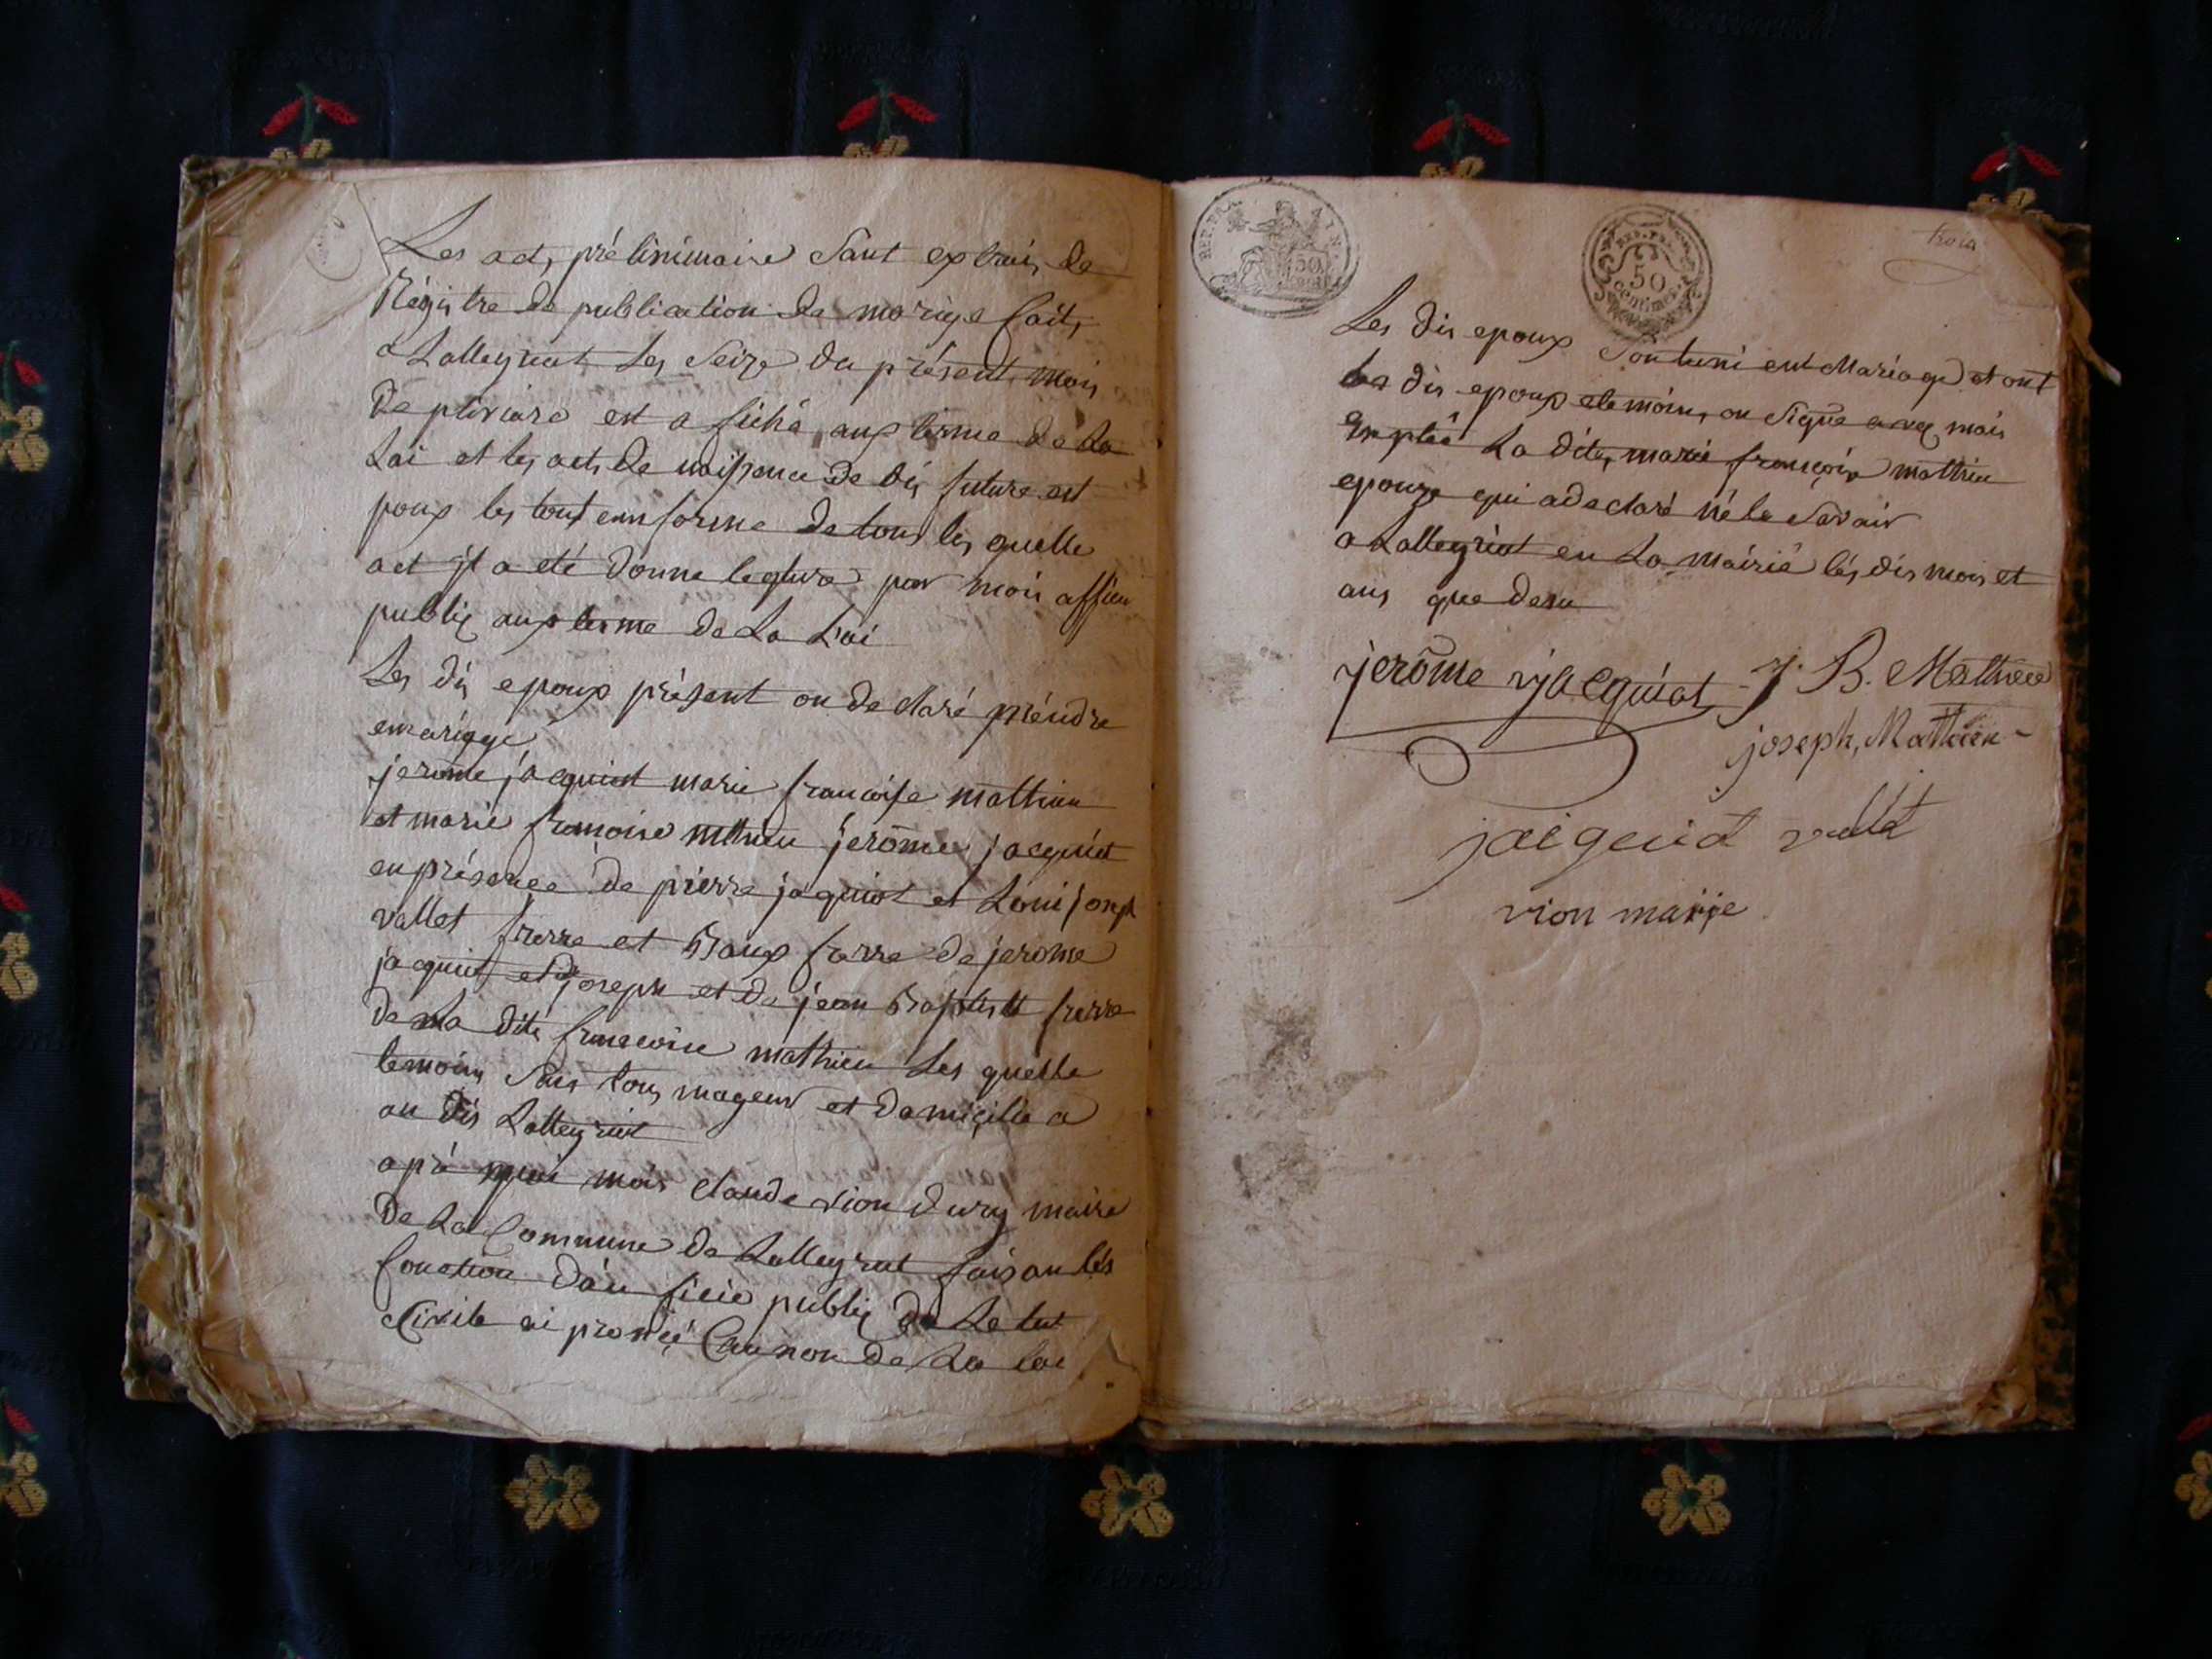 Les act, préliminaire sant extrais de
Régistre de publication de mariage fait,
a Lalleyriat Les seize du présent mois
de pluviose est a fiché aux terme de La
Lai et les acts de naissance de dis future est
poux les tout emforme de tous les quelle
act jl a eté donne legture par moi
public aux terme de La Lai
Les dis epoux présent on declaré préndre
emariage
jerome jacquiot marie francoise mathieu
et marie francoise mthieu jerome jacquiot
enprésence de pierre jaquiot et Loui joseph
vallet frerre et Baux frerre de jerome
jacquiot et joseph et de jean Baptiste frerre
de La dite francoise mathieu Les quelle
temoins sous tous mageur et damicilie a
au dis Lalleyriat
apré quoi mois claude vion dury maire
De La Commune de Lalleyriat faisan lés
fonction publiq de
Civile ai au non de La loi
REP. FRA.
50
REP. FRA.
50
centimes
trois
Les dis epoux sontuni ent Mariage et ont
Les dis epoux etemoins on signe aveq mois
exsplié La dite, marie françoise mathieu
epouze qui adeclaré né le savair
a Lalleyriat en La mairié lés dis mois et
ans que desu
jerôme jacquiot J. B. Mathieu
joseph, Mathieu
vallet
vion marije